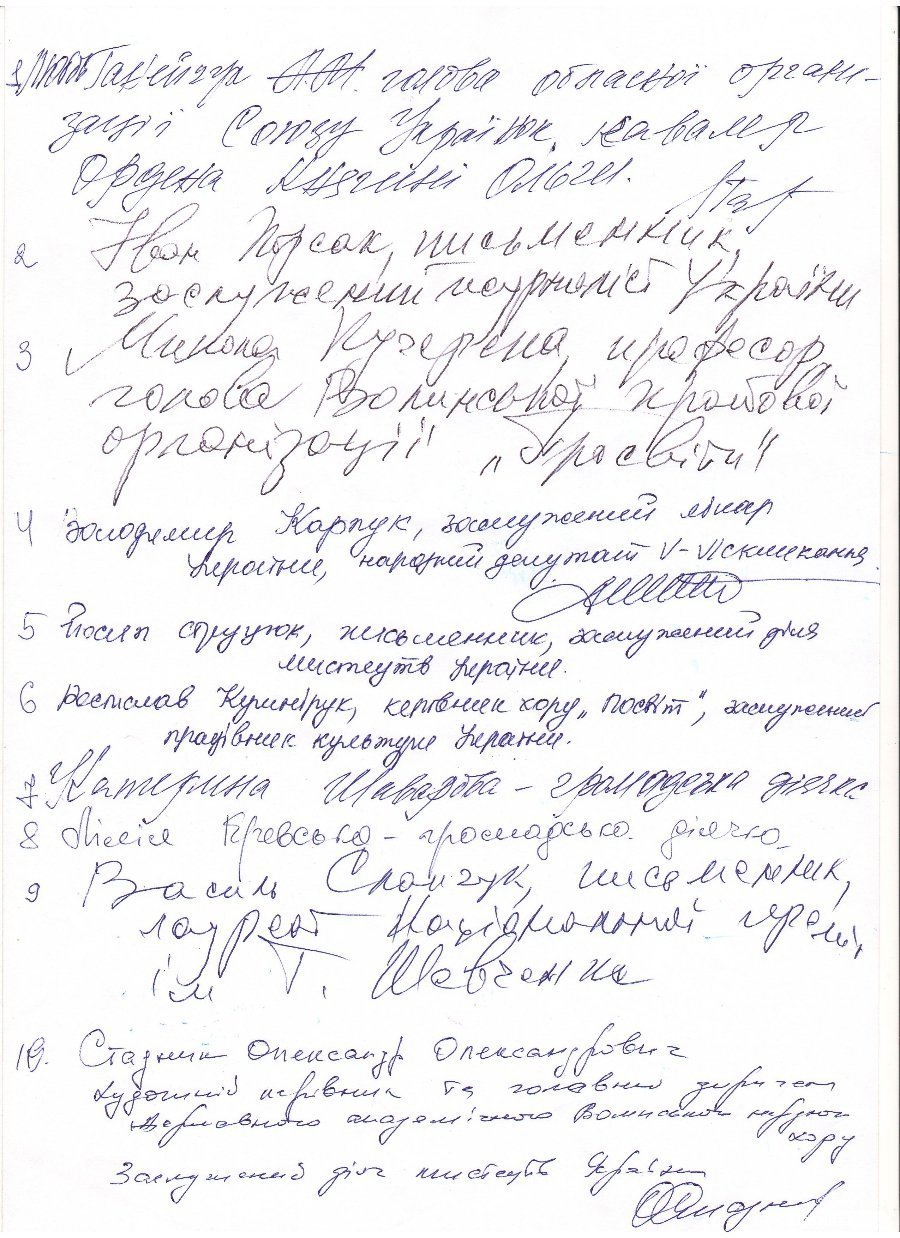 1. Любов Ганейчук А.М. голова обласної органі-
зації Союзу Українок, кавалер
Ордена Княгині Ольги.
2 Іван Корсак, письменник,
заслужений журналіст України
3 Микола Кучерепа, професор,
голова Волинської крайової
організації „Просвіти"
4 Володимир Карпук, заслужений лікар
України, народний депутат V-VI скликання
5 Йосип Струцюк, письменник, заслужений діяч
мистецтв України.
6 Ростислав Кушнірук, керівник хору „Посвіт", заслужений
працівник культури України.
7 Катерина Шаварова - громадська діячка
8 Лілія - громадська діячка
9 Василь Слапчук, письменник,
лауреат Національної премії
ім Т. Шевченка
10. Стадник Олександр Олександрович
художній керівник та головний диригент
Державного академічного Волинського народного
хору
Заслужений діяч мистецтв України